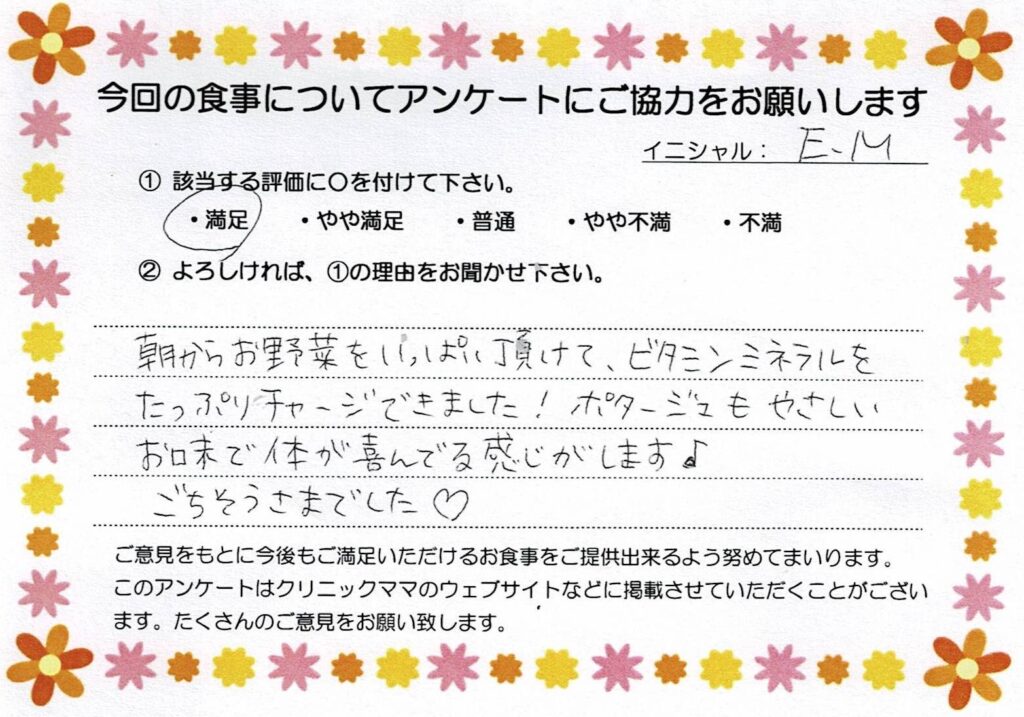 今回の食事についてアンケートにご協力をお願いします
イニシャル： E.M
① 該当する評価に〇を付けて下さい。
・満足 ・やや満足 ・普通 ・やや不満 ・不満
② よろしければ、①の理由をお聞かせ下さい。
朝からお野菜をいっぱい頂けて、ビタミンミネラルを
たっぷりチャージできました！ポタージュもやさしい
お口味で体が喜んでる感じがします♪
ごちそうさまでした♡
ご意見をもとに今後もご満足いただけるお食事をご提供出来るよう努めてまいります。
このアンケートはクリニックママのウェブサイトなどに掲載させていただくことがござい
ます。たくさんのご意見をお願い致します。